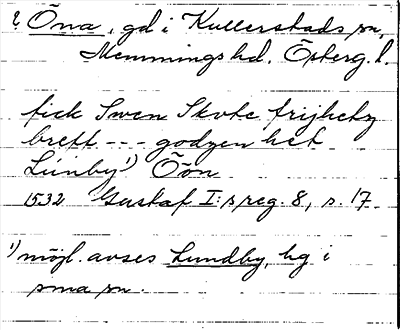 ? Öna, gd i Kullerstads sn,
Memmings hd, Österg. l.
fick Swen Skote frijhetz
breff --- godzen het
Lúnby¹⁾ Öön
1532 Gustaf I:s reg. 8, s. 17.
¹⁾ möjl. avses Lundby, hg i
sma sn.